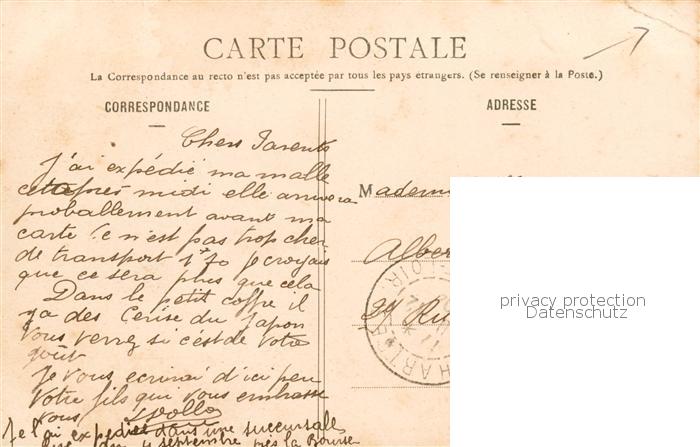 CARTE POSTALE
La Correspondance au recto n'est pas acceptée par tous les pays étrangers. (Se renseigner à la Poste.)
CORRESPONDANCE
Chers Parents
J'ai expédié ma malle
cette après midi elle arrivera
proballement avant ma
carte ce n'est pas trop cher
de transport 1f70 je croyais
que ce sera plus que cela
Dans le petit coffre il
ya des Cerise du Japon
vous verrez si c'est de votre
goût
Je vous ecrirai d'ici peu
Votre fils qui vous embrasse
vous
Je l'ai expédiée dans une succursale
4 septembre près la Bourse
ADRESSE
Madem
Alber
24 Ru
privacy protection
Datenschutz